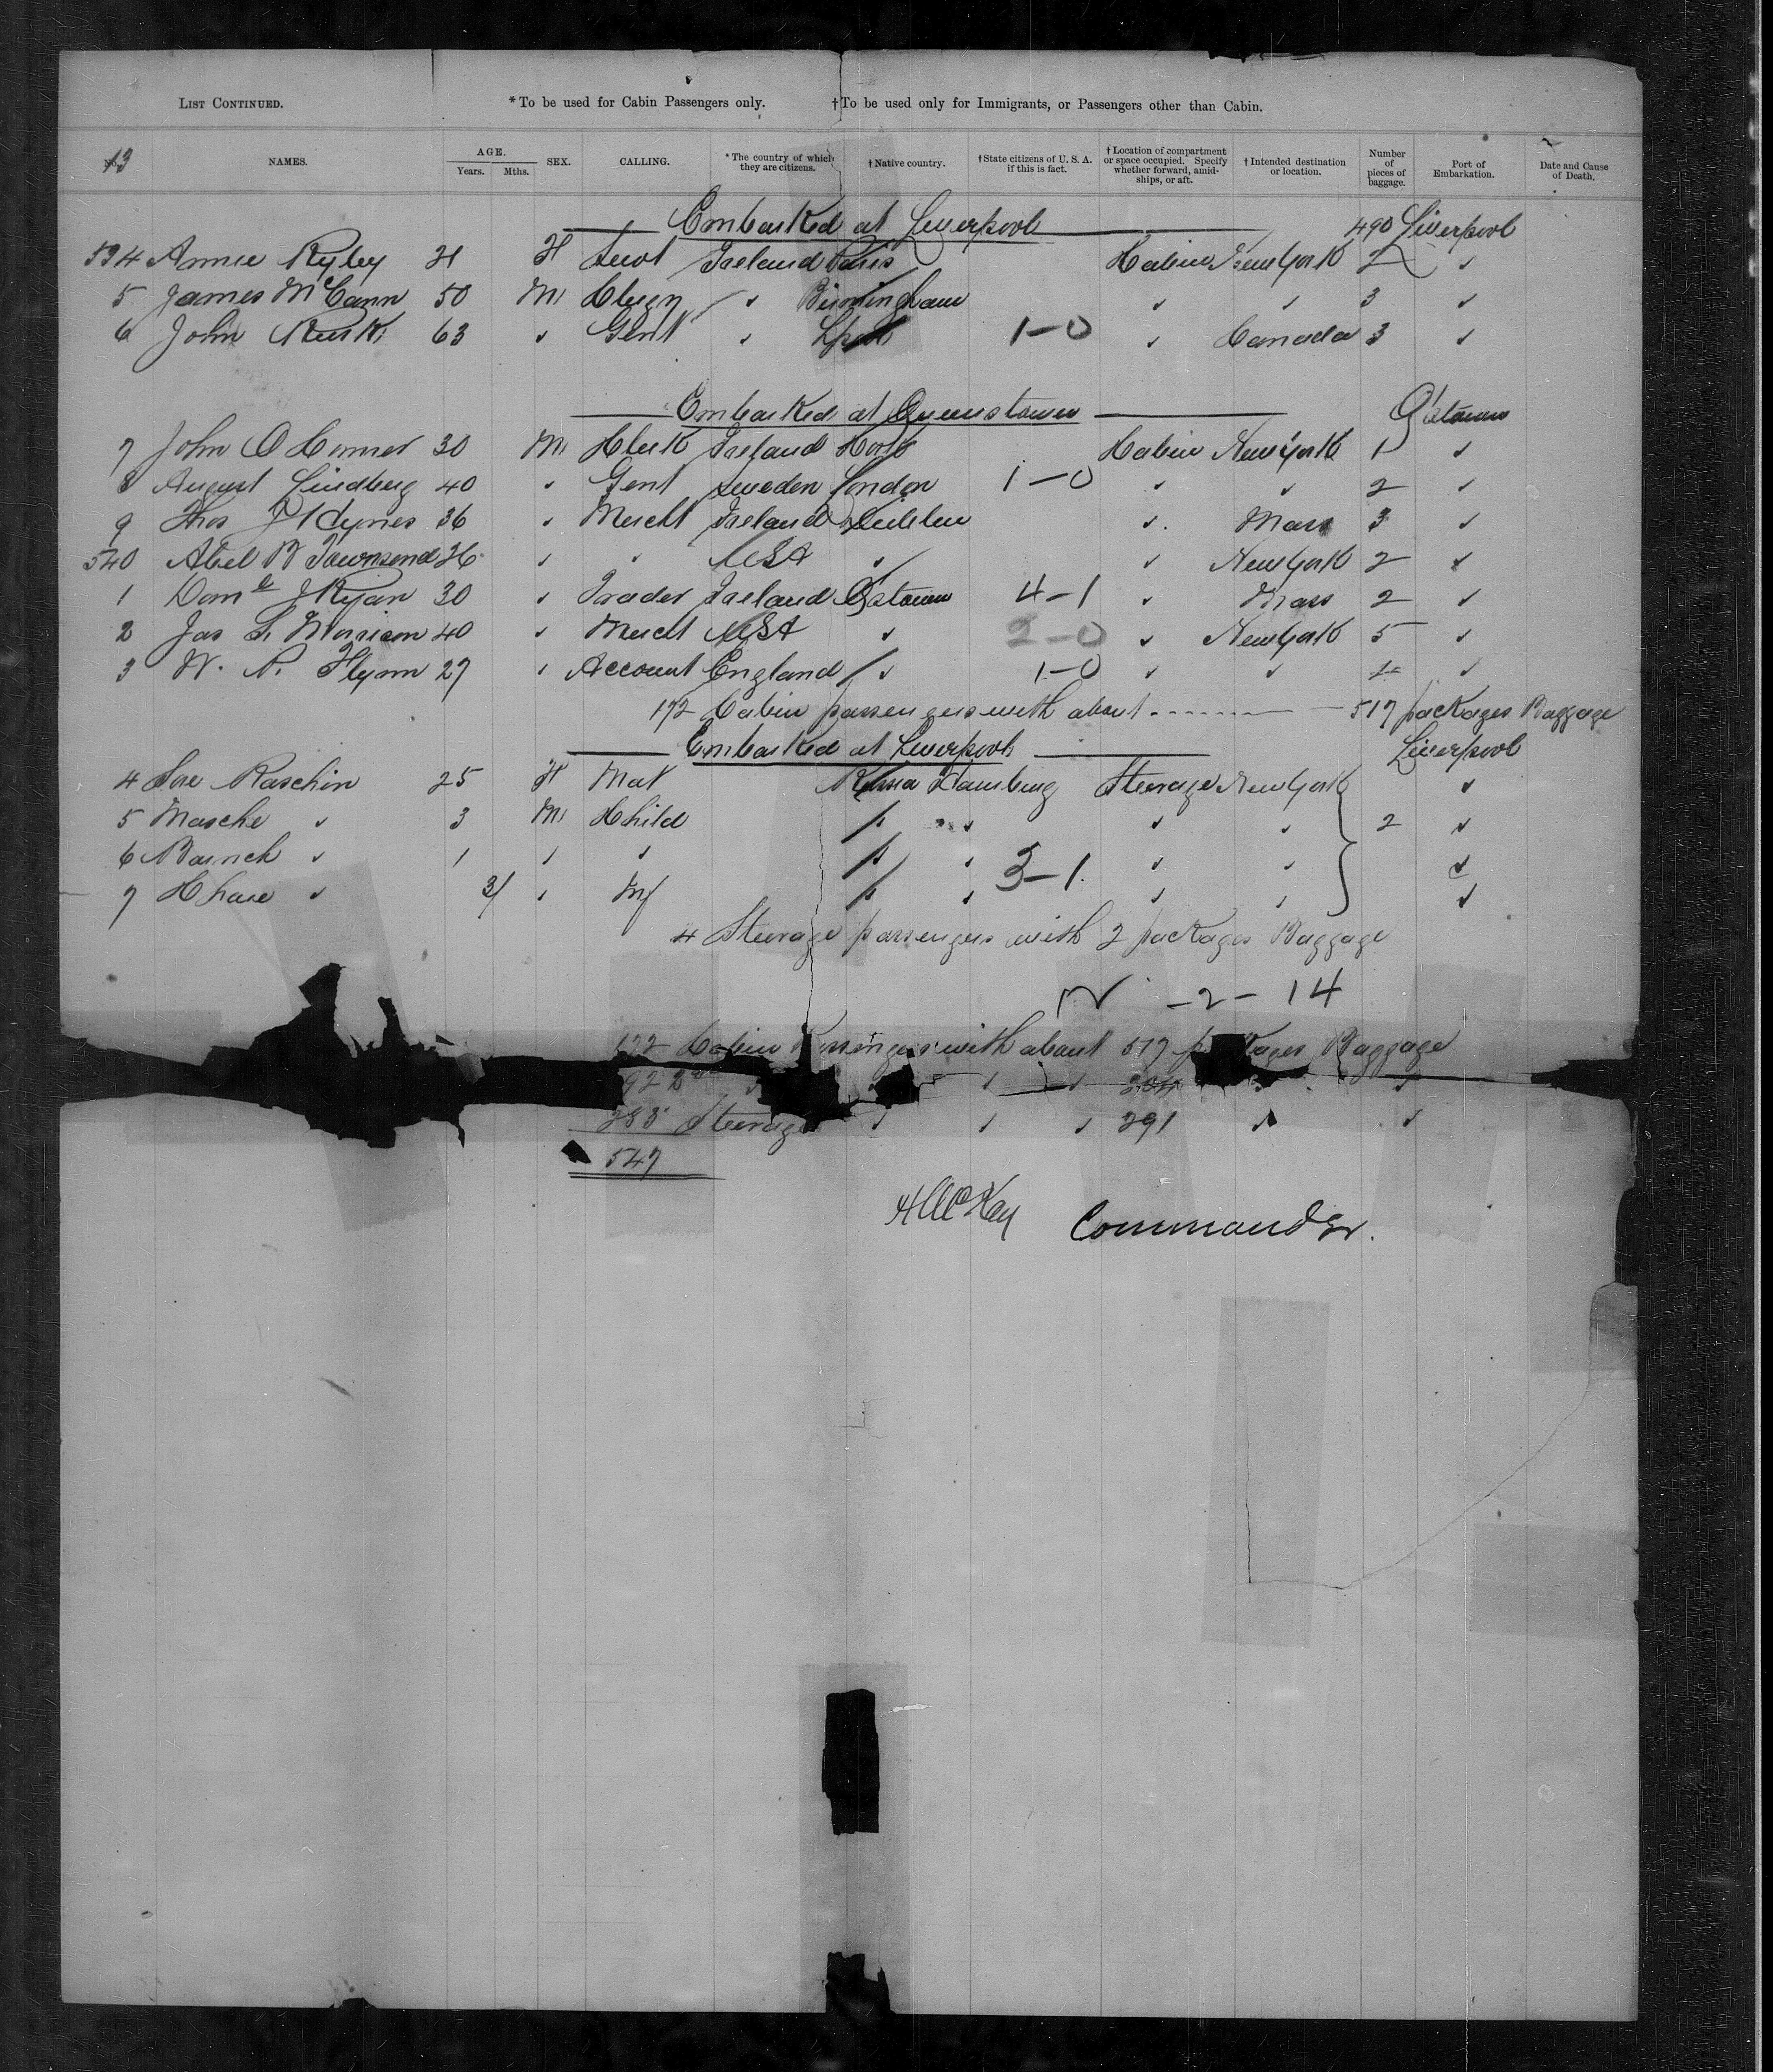 LIST CONTINUED. *To be used for Cabin Passengers only. †To be used only for Immigrants, or Passengers other than Cabin.
13 NAMES. AGE. Years. Mths. SEX. CALLING. *The country of which they are citizens. †Native country. †State citizens of U. S. A. if this is fact. †Location of compartment or space occupied. Specify whether forward, amidships, or aft. †Intended destination or location. Number of pieces of baggage. Port of Embarkation. Date and Cause of Death.
Embarked at Liverpool 490 Liverpool
534 Annie Ryley Ireland Paris Cabin New York 2 ✓
5 James McCann 50 M Clergy ✓ Birmingham ✓ ✓ 3 ✓
6 John 63 ✓ Gent ✓ Lpool 1-0 ✓ Canada 3 ✓
Embarked at Queenstown Qstown
7 John O Connor 30 M Clerk Ireland Cork Cabin New York 1 ✓
8 August Lindberg 40 ✓ Gent Sweden London 1-0 ✓ ✓ 2 ✓
9 Thos J Hynes 36 ✓ Mercht Ireland Dublin ✓ Mass 3 ✓
540 Abel W Townsend 26 ✓ ✓ USA ✓ ✓ New York 2 ✓
1 J Ryan 30 ✓ Trader Ireland Qstown 4-1 ✓ Mass 2 ✓
2 Jas S. Morrison 40 ✓ Mercht USA ✓ 2-0 ✓ New York 5 ✓
3 W. Flynn 27 ✓ Account England ✓ 1-0 ✓ ✓ 4 ✓
172 Cabin passengers with about 517 packages Baggage
Embarked at Liverpool Liverpool
4 Raschin 25 Mat Russia Hamburg Steerage New York ✓
5 Masche ✓ 3 M Child ✓ ✓ ✓ 2 ✓
6 ✓ 1 ✓ ✓ ✓ 3-1. ✓ ✓ ✓
7 ✓ 3/ ✓ ✓ ✓ ✓ ✓
4 Steerage passengers with 2 packages Baggage
-2- 14
172 Cabin Passengers with about 517 packages Baggage
92 2nd ✓ ✓ 204 ✓
283 Steerage ✓ ✓ ✓ 291 ✓ ✓
547
H McKay Commander.